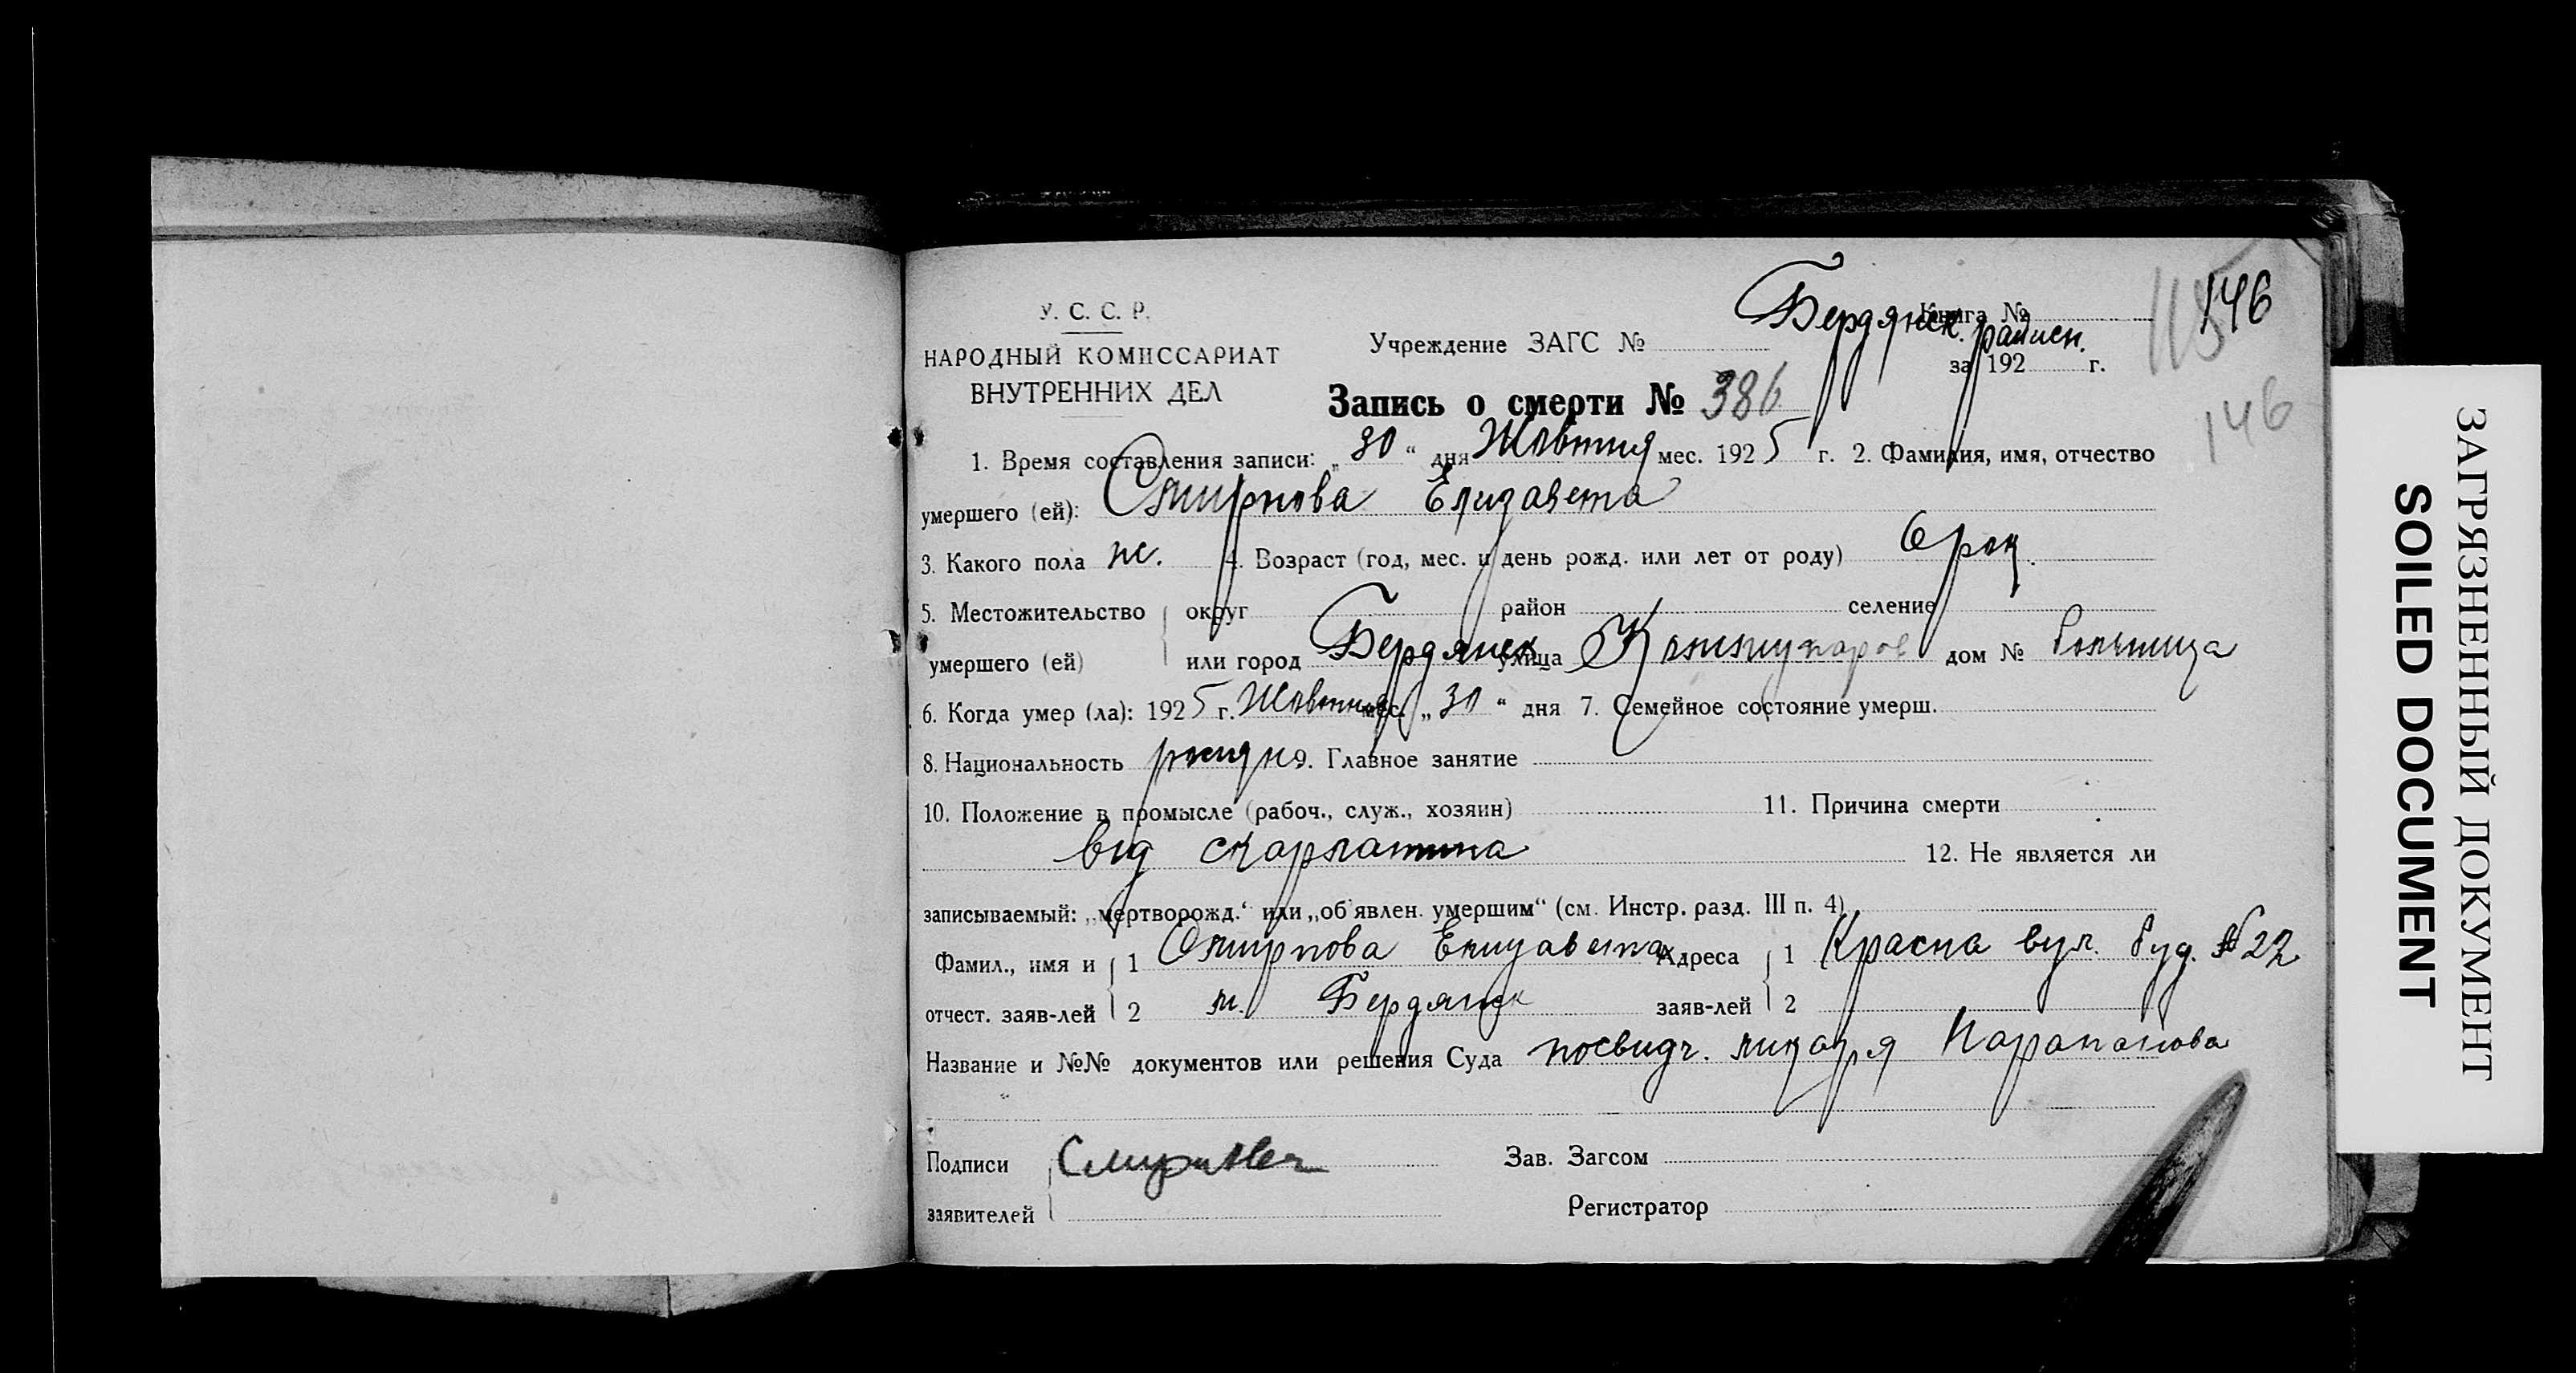 У. С. С. Р.
НАРОДНЫЙ КОМИССАРИАТ
ВНУТРЕННИХ ДЕЛ
Учреждение ЗАГС № Бердянск. райисп.
Книга №
за 192 г.
146
115
146
Запись о смерти № 386
1. Время составления записи: „30“ дня Жовтня мес. 1925 г. 2. Фамилия, имя, отчество
умершего (ей): Смирнова Елизавета
3. Какого пола ж. 4. Возраст (год, мес. и день рожд. или лет от роду) 6 рок.
5. Местожительство округ район селение
умершего (ей) или город Бердянск улица дом № Больница
6. Когда умер (ла): 1925 г. Жовтня мес. „30“ дня 7. Семейное состояние умерш.
8. Национальность 9. Главное занятие
10. Положение в промысле (рабоч., служ., хозяин) 11. Причина смерти
від скарлатина 12. Не является ли
записываемый: „мертворожд.“ или „об'явлен. умершим“ (см. Инстр. разд. III п. 4)
Фамил., имя и 1 Смирнова Елизавета Адреса 1 Красна вул. буд. № 22
отчест. заяв-лей 2 м. Бердянск заяв-лей 2
Название и №№ документов или решения Суда посвидч. лікаря Карапанова
Подписи Смирнова Зав. Загсом
заявителей Регистратор
ЗАГРЯЗНЕННЫЙ ДОКУМЕНТ
SOILED DOCUMENT